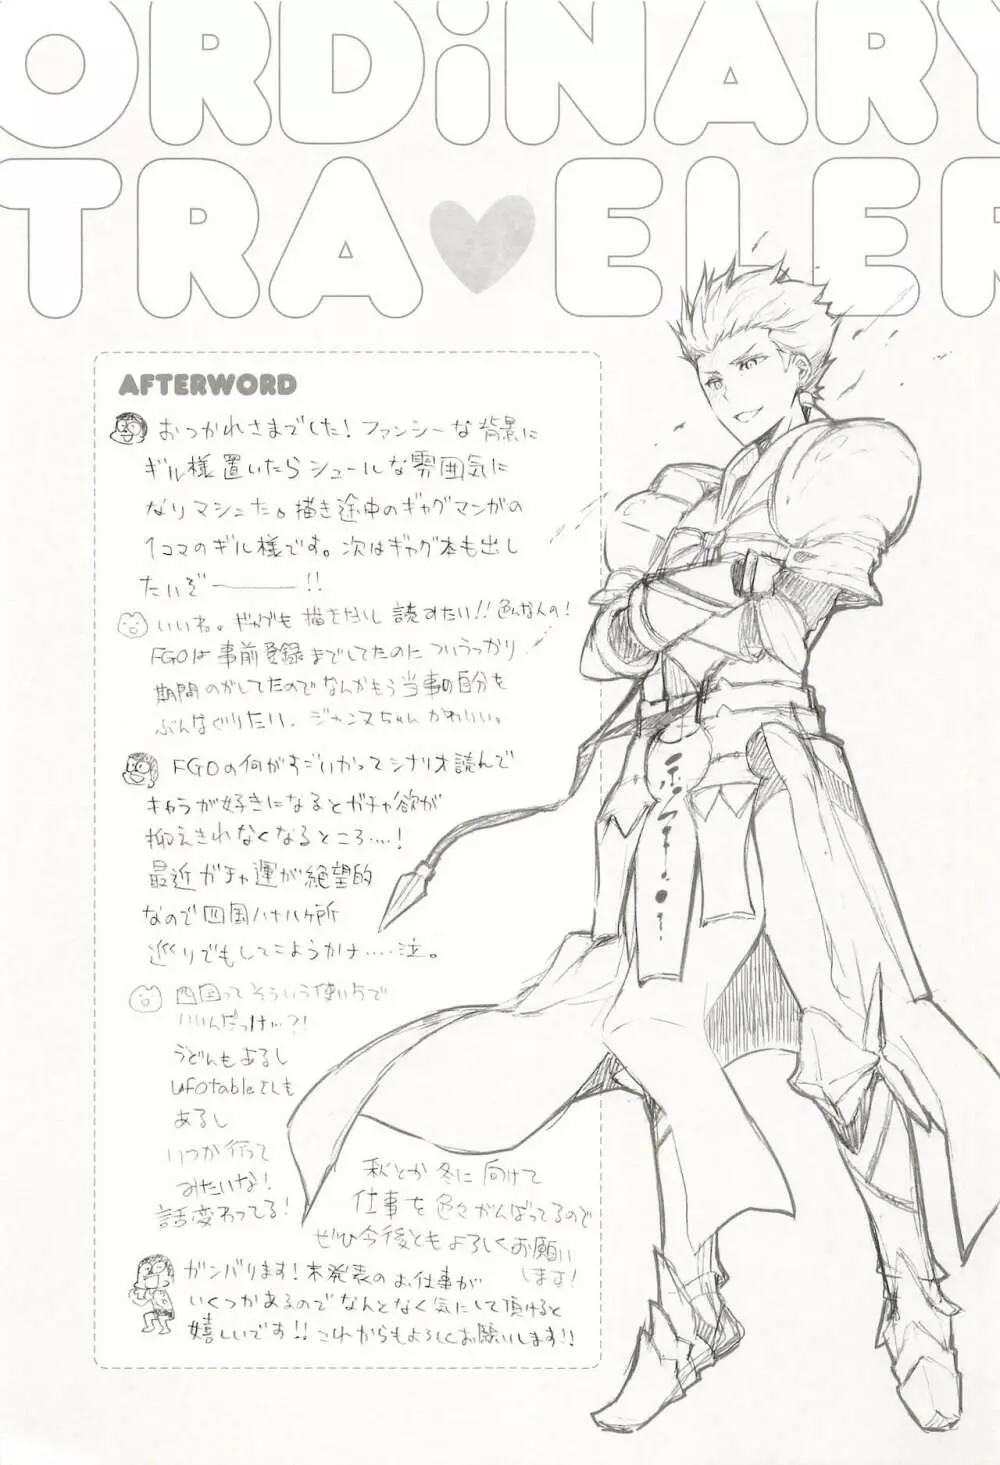 ORDiNARY
TRA♥ELER
AFTERWORD
おつかれさまでした!ファンシーな背景に
ギル様置いたらシュールな雰囲気に
なりマシュた。描き途中のギャグマンガの
1コマのギル様です。次はギャグ本も出し
たいぞ――!!
いいね。ギャグも描きたいし読みたい!!色んなの!
FGOは事前登録までしてたのについうっかり
期間のがしてたのでなんかもう当事の自分を
ぶんなぐりたい、ジャンヌちゃんかわいい。
FGOの何がすごいかってシナリオ読んで
キャラが好きになるとガチャ欲が
抑えきれなくなるところ….!
最近ガチャ運が絶望的
なので四国ハナハケ所
巡りでもしてこようかナ……泣。
四国ってそういう使い方で
いいんだっけ…?!
うどんもあるし
ufotableさんも
あるし
いつか行って
みたいな!
話変わってる!
秋とか冬に向けて
仕事を色々がんばってるので
ぜひ今後ともよろしくお願い
します!
ガンバります!未発表のお仕事が
いくつかあるのでなんとなく気にして頂けると
嬉しいです!!これからもよろしくお願いします!!